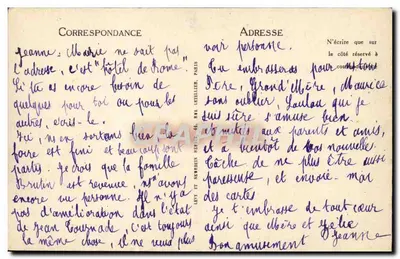 CORRESPONDANCE
Jeanne, Marie ne sait pas
l'adresse, c'est "hôtel de Rome"
Si tu as encore besoin de
quelques pour toi ou pour les
autres, écris-le.
Ici, nous en sortons, la
foire est fini et beaucoup sont
partis. Je crois que la famille
est revenue, ns n'avons
encore vu personne. Il n'y a
pas d'amélioration dans l'état
de Jean, c'est toujours
la même chose, il ne veut plus
ADRESSE
N'écrire que sur
le côté réservé à
voir personne.
Tu embrasseras pour nous
Père, Grand'Mère, Maurice
sans oublier, Loulou qui je
suis sûre s'amuse bien.
amitiés aux parents et amis,
et à bientôt de vos nouvelles
tâche de ne plus être aussi
paresseuse, et envoie-moi
des cartes
Je t'embrasse de tout cœur
ainsi que Mère et
Bon amusement Jeanne